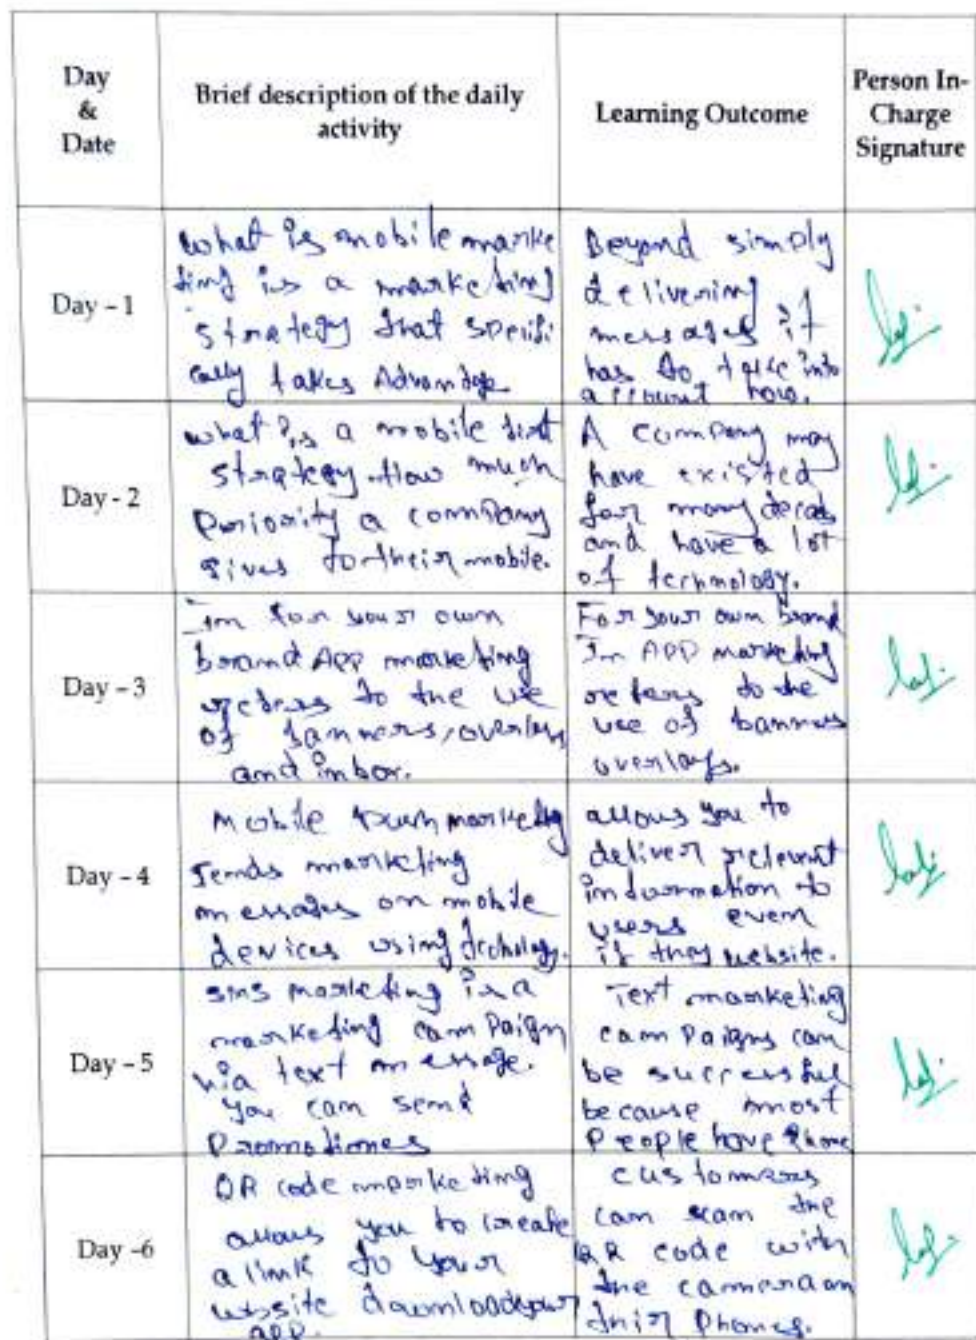 Day
&
Date
Brief description of the daily
activity
Learning Outcome
Person In-
Charge
Signature
Day - 1
what is mobile marke
ting is a marketing
strategy that specifi
cally takes Advantage
Beyond simply
delivering
messages it
has to take into
account how.
Day - 2
what is a mobile first
strategy How much
Periority a company
gives to their mobile.
A company may
have existed
for many decads
and have a lot
of technology.
Day - 3
In for your own
brand App marketing
refers to the use
of banners, overlays
and inbox.
For your own brand
In APP marketing
refers to the
use of banners
overlays.
Day - 4
mobile Push marketing
sends marketing
messages on mobile
devices using
allows you to
deliver relevent
information to
users even
if they website.
Day - 5
sms marketing is a
marketing campaign
via text message.
you can send
Promotiones
Text marketing
campaigns can
be successful
because most
People have Phone
Day -6
QR code marketing
allows you to create
a link to your
website download your
app.
customers
can scan the
QR code with
the camera on
their Phones.